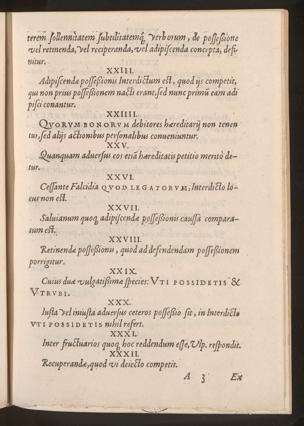 terem sollennitatem subtilitatemq́; verborum, de possessione
vel retinenda, vel reciperanda, vel adipiscenda concepta, defi-
nitur.
XXIII.
Adipiscendæ possessionis Interdictum est, quod ijs competit,
qui non prius possessionem nacti erant, sed nunc primũ eam adi
pisci conantur.
XXIIII.
QVORVM BONORVM debitores hæreditarij non tenen
tur, sed alijs actionibus personalibus conueniuntur.
XXV.
Quanquam aduersus eos etiã hæreditatis petitio meritò de-
tur.
XXVI.
Cessante Falcidia QVOD LEGATORVM; Interdicto lo-
cus non est.
XXVII.
Saluianum quoq; adipiscendæ possessionis caussa compara-
tum est.
XXVIII.
Retinendæ possessionis, quod ad defendendam possessionem
porrigitur.
XXIX.
Cuius duæ vulgatissimæ species: VTI POSSIDETIS &
VTRVBI.
XXX.
Iusta vel iniusta aduersus ceteros possessio sit, in Interdicto
VTI POSSIDETIS nihil refert.
XXXI.
Inter fructuarios quoq; hoc reddendum esse, Vlp. respondit.
XXXII.
Recuperandæ, quod vi deiecto competit.
A 3 Ex